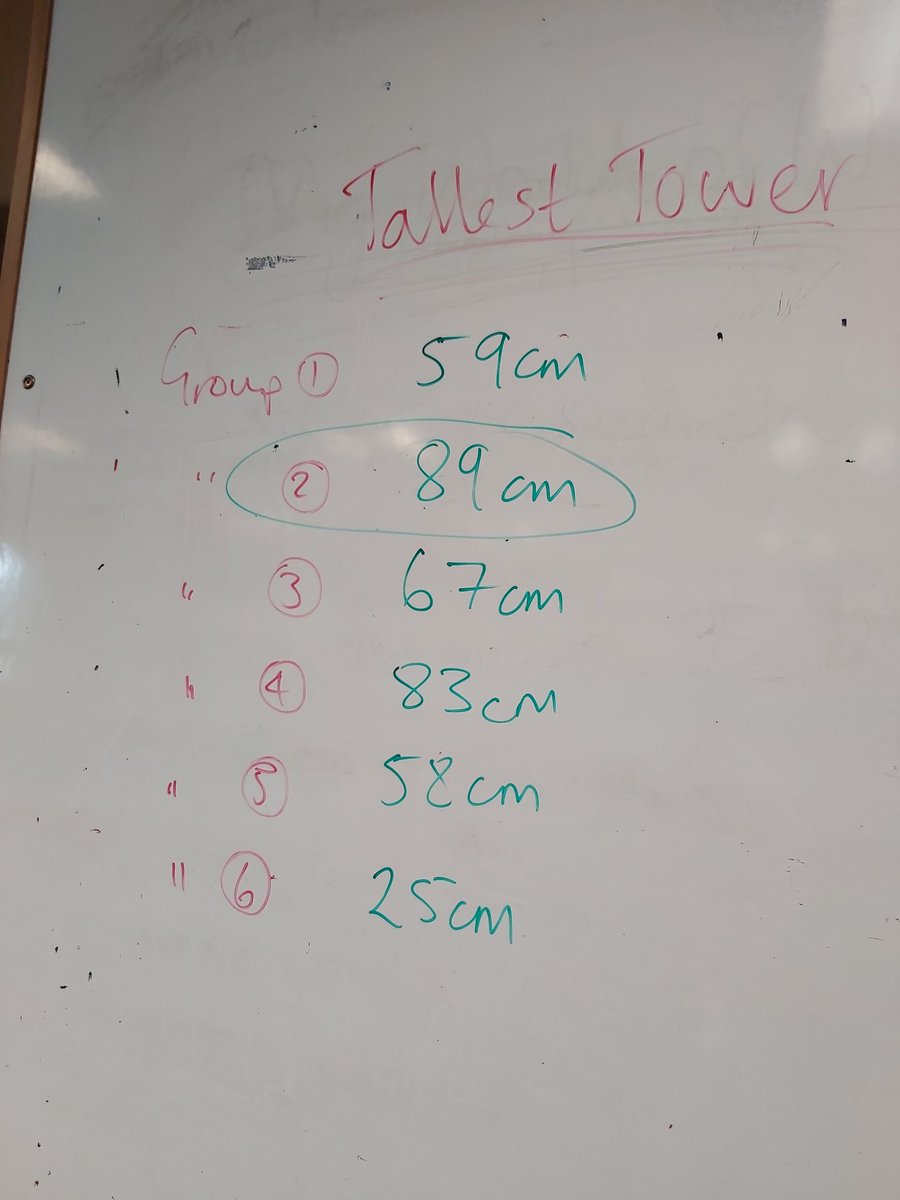 Tallest Tower
Group ① 59cm
" ② 89cm
" ③ 67cm
" ④ 83cm
" ⑤ 58cm
" ⑥ 25cm